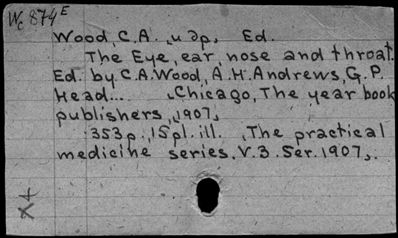 Wc 874E
Wood, C.A. „и др„ Ed.
The Eye, ear, nose and throat.
Ed. by C.A. Wood, A.H. Andrews, G.P.
Head... „Chicago, The year book
publishers„ 1907„
353p., 15pl. ill. „The practical
medicine series. V.3. Ser. 1907„.
X4